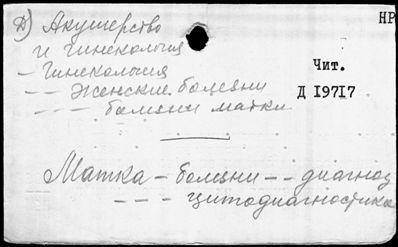 НР
Д) Акушерство
и гинекология
– Гинекология
– – Женские болезни
– – – болезни матки
Чит.
Д 19717
Матка – болезни – – диагноз
– – – цитодиагностика